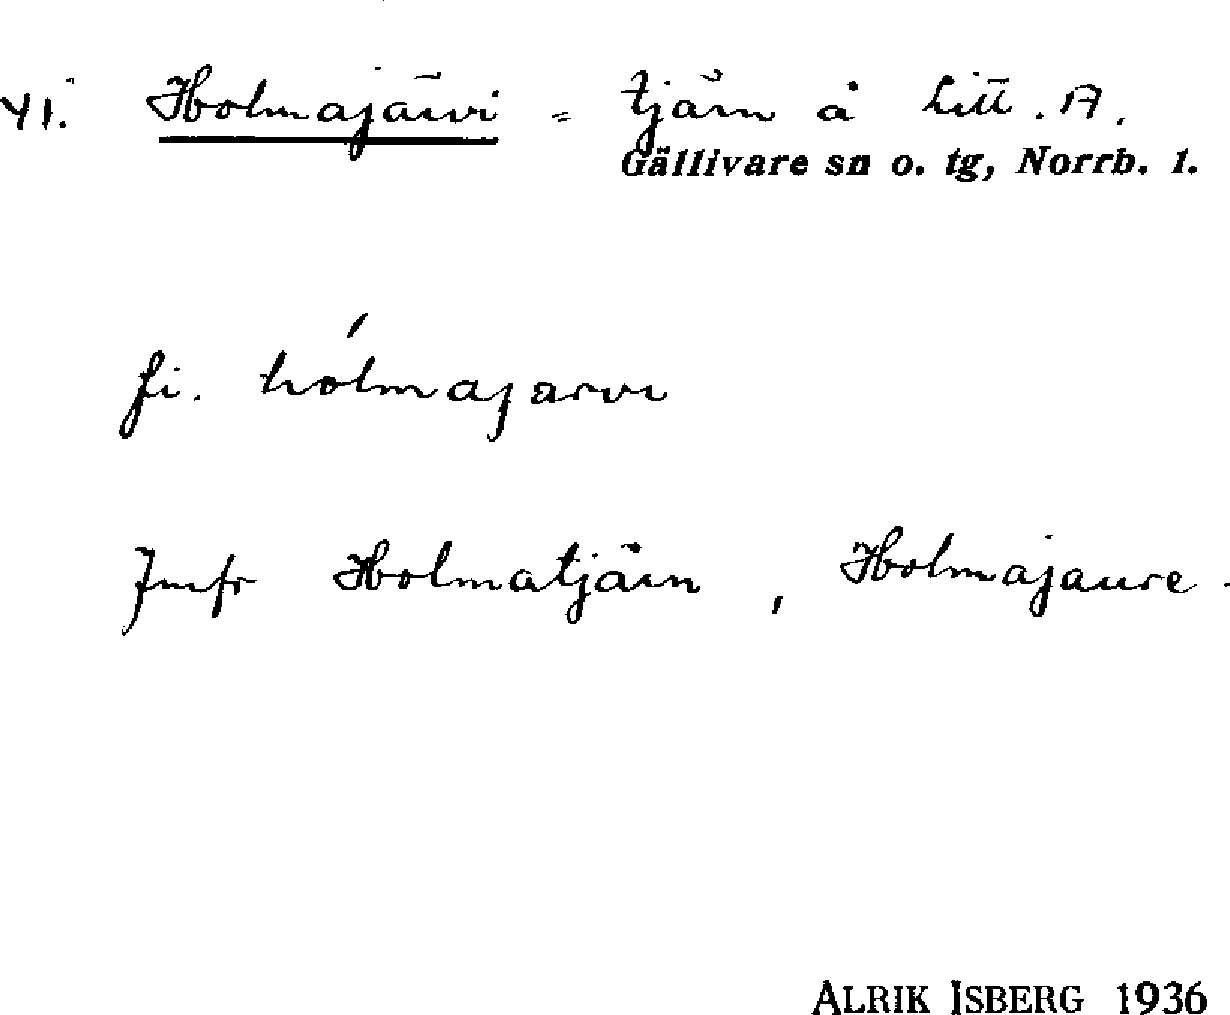 41. Holmajärvi = tjärn å Litt. A.
Gällivare sn o. tg, Norrb. l.
fi. hólmajarvi
Jmfr Holmatjärn, Holmajaure.
ALRIK ISBERG 1936